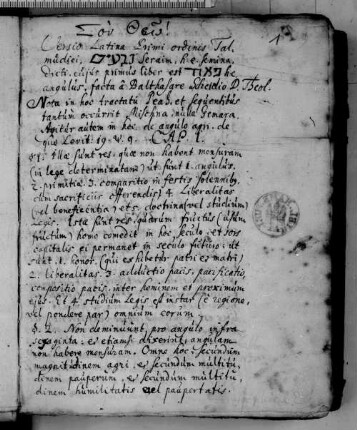 Σὺν Θεῷ!
1
Versio Latina Primi ordinis Tal-
mudici, זרעים Seraim, h.e. semina.
Dicti, ejus primus liber est פאה h.e.
angulus, facta à Balthasare Scheidio D. Theol.
Nota in hoc tractatu Peah et sequentibus
tantum occurrit Mischna, nulla Gemara.
Agitur autem in hoc de angulo agri. de
quo Levit. 19. v. 9. CAP. I.
§ 1. Hae sunt res, quae non habent mensuram
(in lege determinatam) ut sunt 1. angulus.
2. primitiae 3. comparitio in festis solennib.
cum sacrificiis offerendis) 4. Liberalitas
(vel beneficentia) et 5. doctrina (vel studium)
legis. Istae sunt res, quarum fructus (usum
fructum) homo comedit in hoc seculo, et sors
capitalis ei permanet in seculo futuro: ut
sunt 1. honor (qui exhibetur patri et matri)
2. liberalitas. 3. adductio pacis, pacificatio,
compositio pacis inter hominem et proximum
ejus. Et 4. studium Legis est instar (è regione,
vel pondere par) omnium eorum)
§. 2. Non diminuunt, pro angulo infra
sexaginta, et etiamsi dixerint, angulum
non habere mensuram. Omne hoc: secundum
magnitudinem agri, et secundum multitu-
dinem pauperum, et secundum multitu-
dinem humilitatis vel paupertatis.